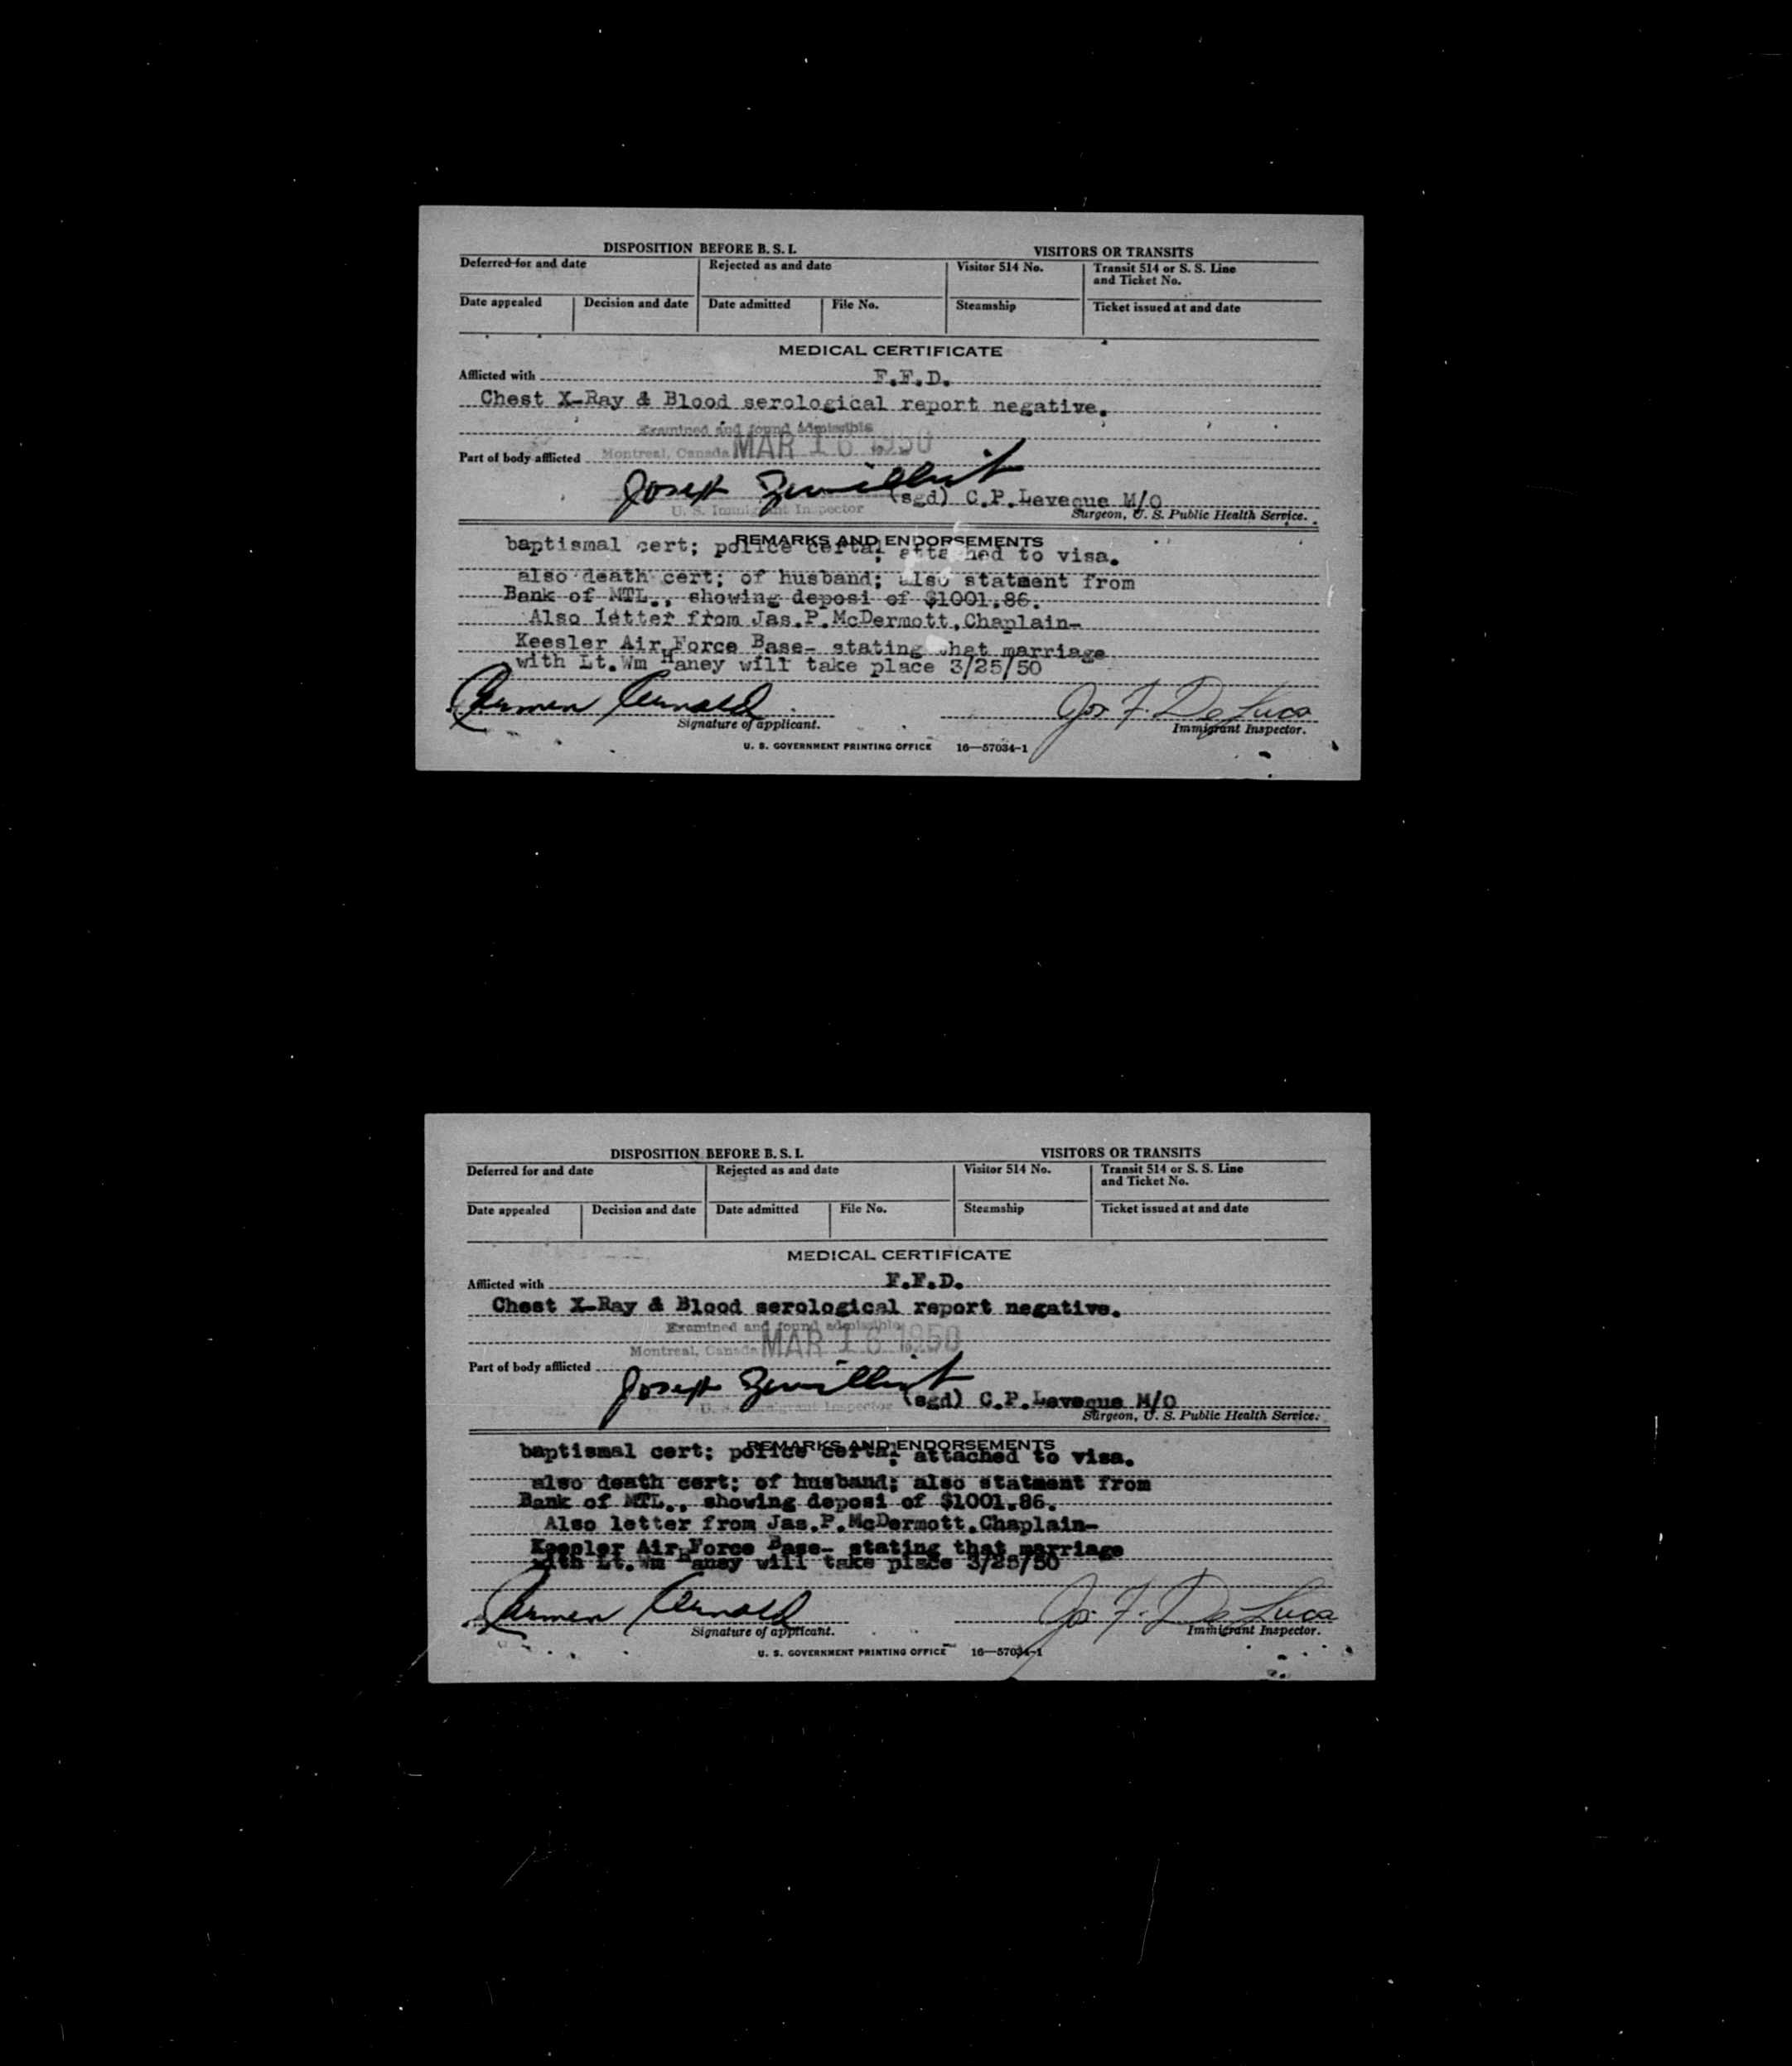 DISPOSITION BEFORE B. S. I. VISITORS OR TRANSITS
Deferred for and date Rejected as and date Visitor 514 No. Transit 514 or S. S. Line
and Ticket No.
Date appealed Decision and date Date admitted File No. Steamship Ticket issued at and date
MEDICAL CERTIFICATE
Afflicted with F.F.D.
Chest X-Ray & Blood serological report negative.
Examined and found admissible
Montreal, Canada MAR 16 1950
Part of body afflicted
Joseph
(sgd) C.P.Leveque M/O
U. S. Immigrant Inspector
Surgeon, U. S. Public Health Service.
REMARKS AND ENDORSEMENTS
baptismal cert; police certs; attached to visa.
also death cert; of husband; also statment from
Bank of MTL., showing deposi of $1001.86.
Also letter from Jas.P.McDermott,Chaplain-
Keesler Air Force Base- stating that marriage
with Lt.Wm Haney will take place 3/25/50
Carmen Arnold Jos F. De Luca
Signature of applicant. Immigrant Inspector.
U. S. GOVERNMENT PRINTING OFFICE 16—57034-1
DISPOSITION BEFORE B. S. I. VISITORS OR TRANSITS
Deferred for and date Rejected as and date Visitor 514 No. Transit 514 or S. S. Line
and Ticket No.
Date appealed Decision and date Date admitted File No. Steamship Ticket issued at and date
MEDICAL CERTIFICATE
Afflicted with F.F.D.
Chest X-Ray & Blood serological report negative.
Examined and found admissible
Montreal, Canada MAR 16 1950
Part of body afflicted
Joseph
(sgd) C.P.Leveque M/O
U. S. Immigrant Inspector
Surgeon, U. S. Public Health Service.
REMARKS AND ENDORSEMENTS
baptismal cert; police certs; attached to visa.
also death cert; of husband; also statment from
Bank of MTL., showing deposi of $1001.86.
Also letter from Jas.P.McDermott,Chaplain-
Keesler Air Force Base- stating that marriage
with Lt.Wm Haney will take place 3/25/50
Carmen Arnold Jos F. De Luca
Signature of applicant. Immigrant Inspector.
U. S. GOVERNMENT PRINTING OFFICE 16—57034-1